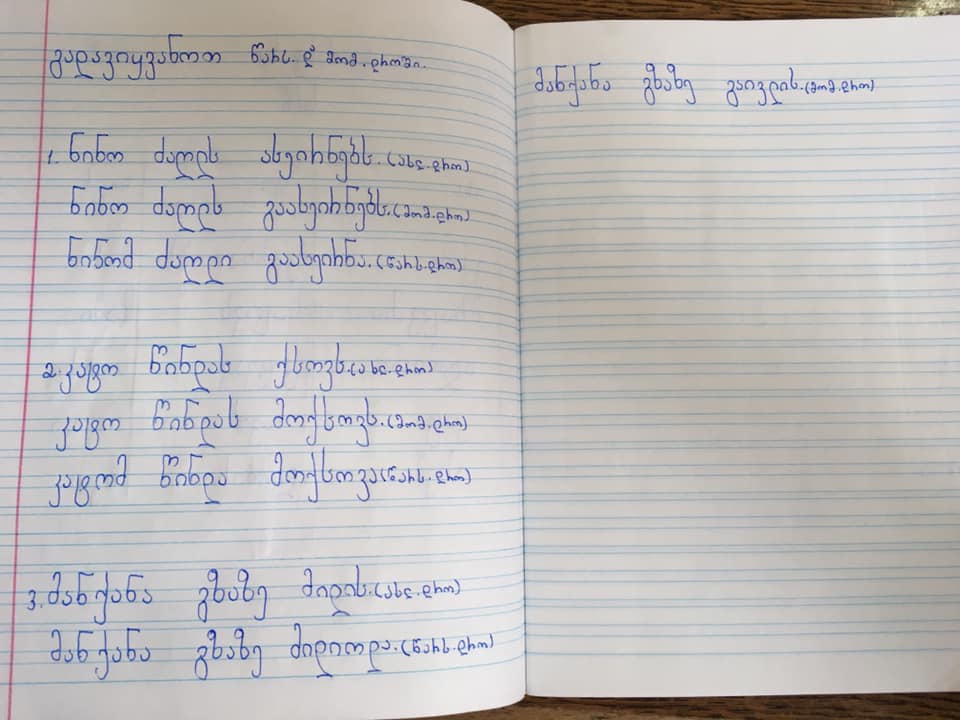 გადავიყვანოთ წარს. და მომ. დროში.
1. ნინო ძაღლს ასეირნებს. (ახც. დრო)
ნინო ძაღლს გაასეირნებს. (მომ. დრო)
ნინომ ძაღლი გაასეირნა. (წარს. დრო)
2. კატო წინდას ქსოვს. (ახც. დრო)
კატო წინდას მოქსოვს. (მომ. დრო)
კატომ წინდა მოქსოვა (წარს. დრო)
3. მანქანა გზაზე მიდის. (ახც. დრო)
მანქანა გზაზე მიდიოდა. (წარს. დრო)
მანქანა გზაზე გაივლის. (მომ. დრო)